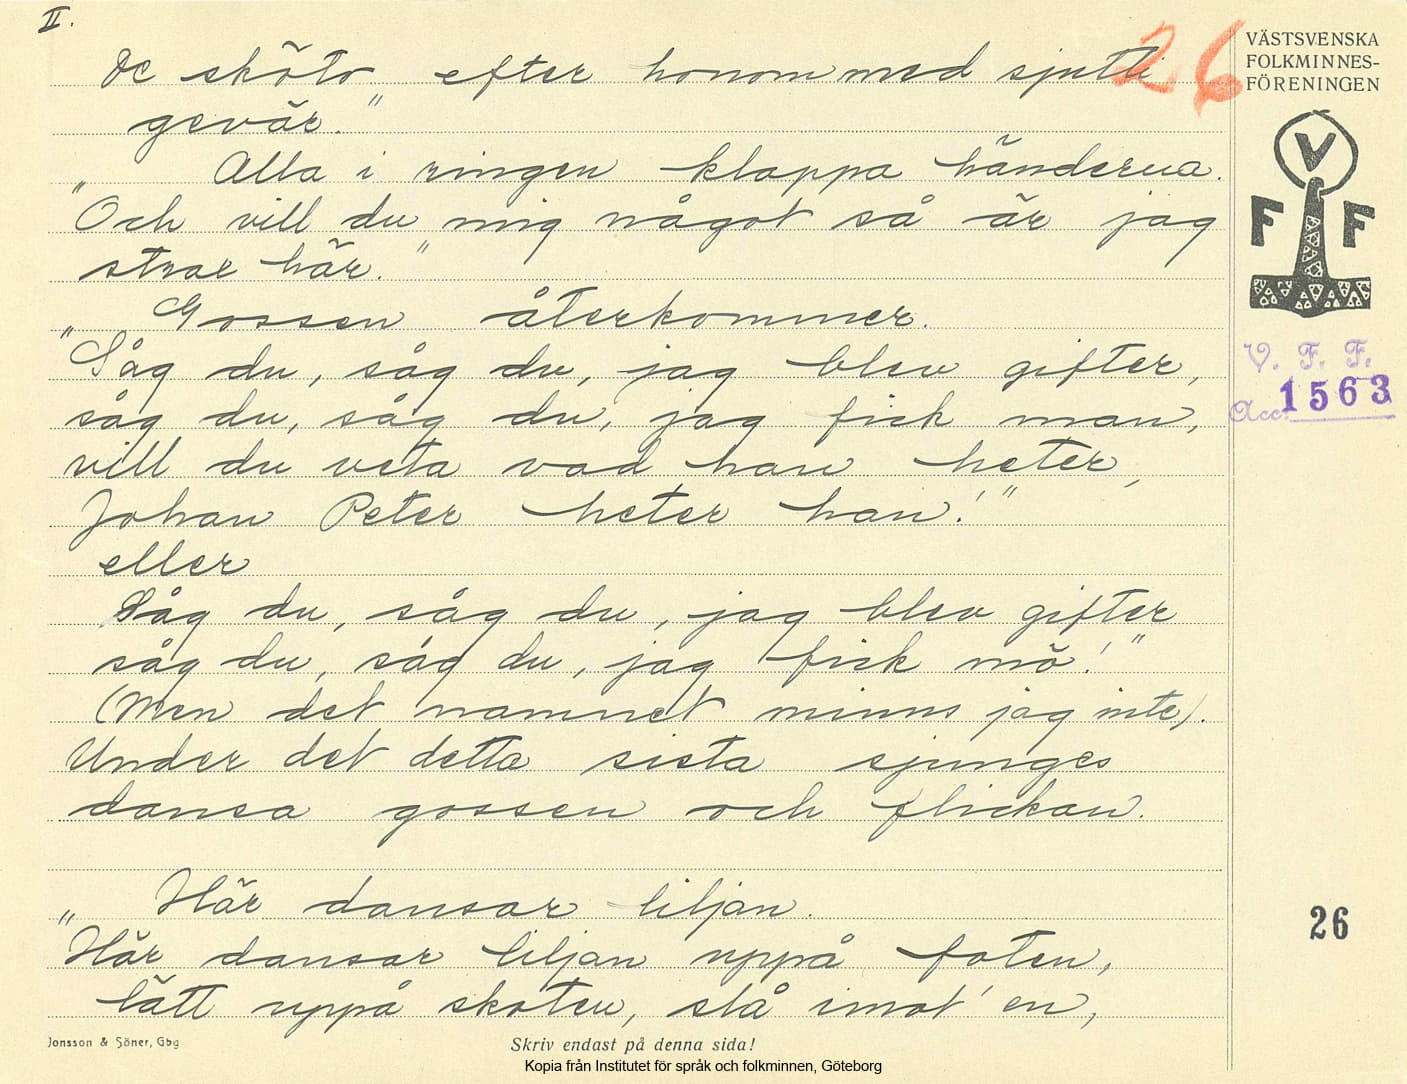 II.
De sköto efter honom med sjutti
gevär."
Alla i ringen klappa händerna.
"Och vill du mig något så är jag
strax här."
Gossen återkommer.
"Såg du, såg du, jag blev gifter,
såg du, såg du, jag fick man,
vill du veta vad han heter,
Johan Peter heter han!"
eller
Såg du, såg du, jag blev gifter
såg du, såg du, jag fick mö!"
(Men det namnet minns jag inte).
Under det detta sista sjunges
dansa gossen och flickan.
Här dansar liljan.
"Här dansar liljan uppå foten,
lätt uppå skoten, slå imot' en,
26
VÄSTSVENSKA
FOLKMINNES-
FÖRENINGEN
V
F F
V. F. F.
Acc. 1563
26
Jonsson & Söner, Gbg
Skriv endast på denna sida!
Kopia från Institutet för språk och folkminnen, Göteborg